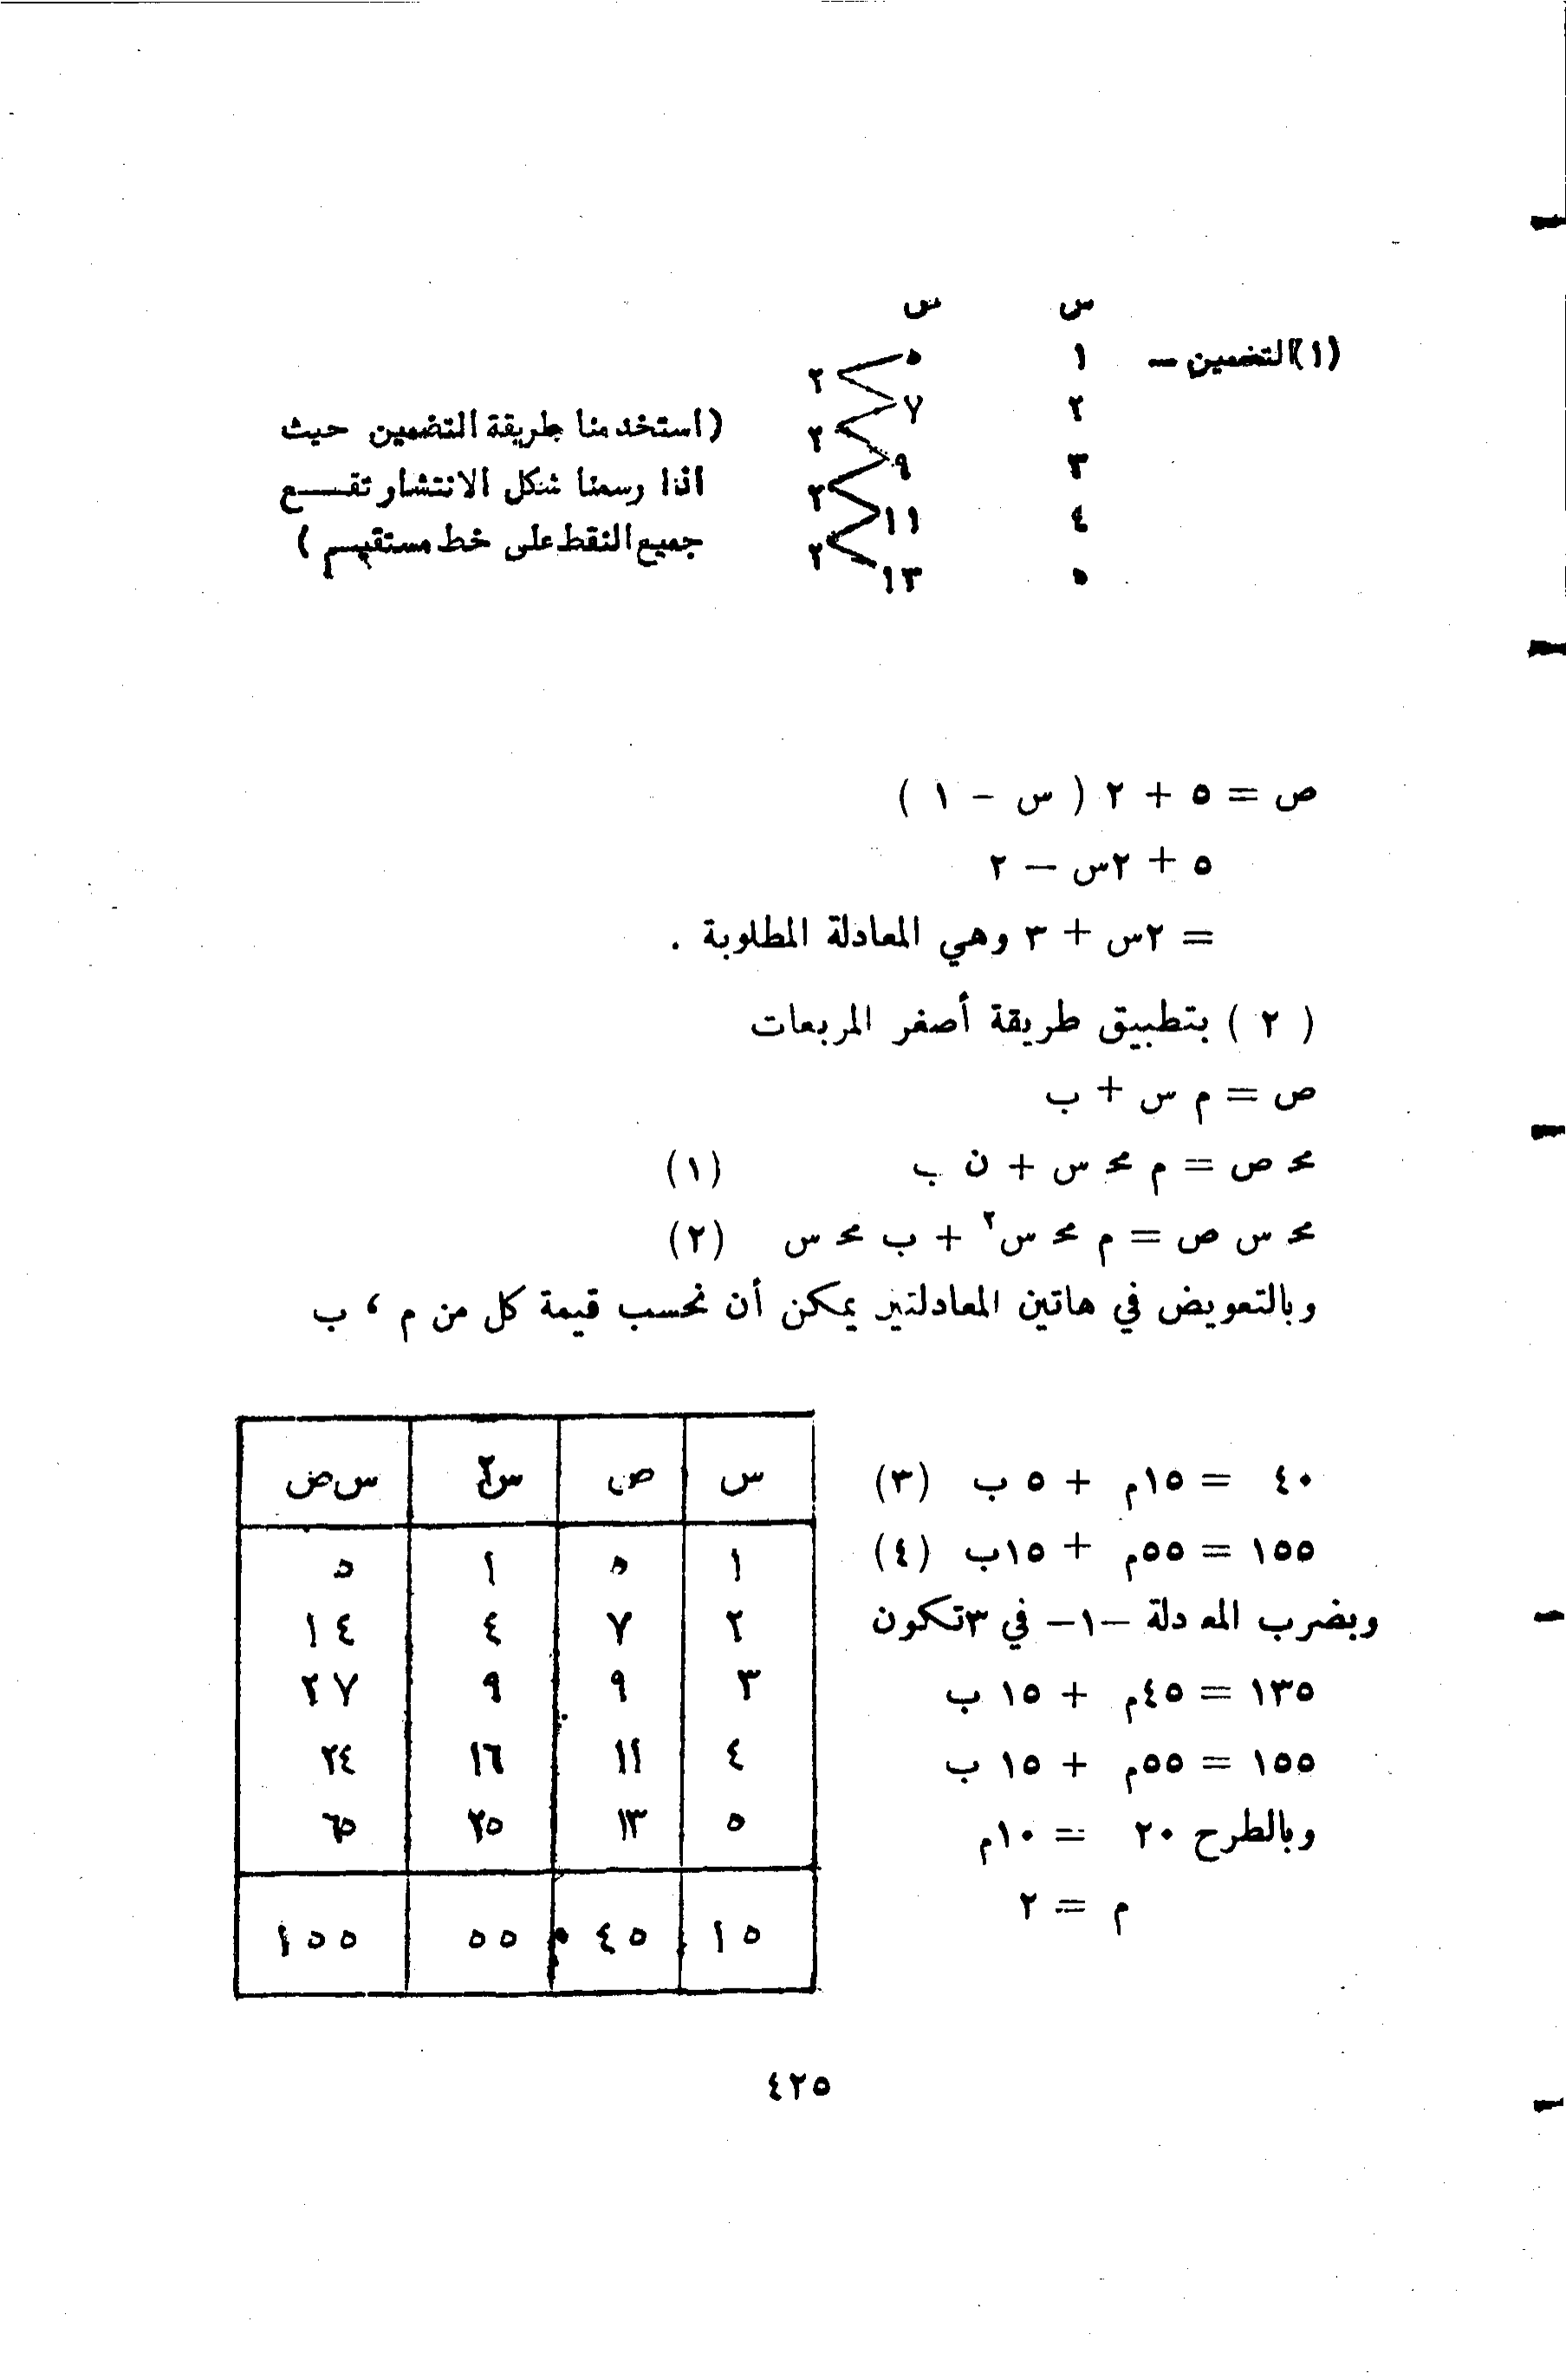 س س
(١) التضمين — ١ ٥
٢
٢ ٧
(استخدمنا طريقة التضمين حيث ٢
٣ ٩
اذا رسمنا شكل الانتشار تقـــع ٢
٤ ١١
جميع النقط على خط مستقيـم ) ٢
٥ ١٣
ص = ٥ + ٢ ( س - ١ )
٥ + ٢س — ٢
= ٢س + ٣ وهي المعادلة المطلوبة .
( ٢ ) بتطبيق طريقة أصغر المربعات
ص = م س + ب
محـ ص = م محـ س + ن ب (١)
محـ س ص = م محـ س٢ + ب محـ س (٢)
وبالتعويض في هاتين المعادلتين يمكن أن نحسب قيمة كل من م ، ب
٤٠ = ١٥م + ٥ ب (٣)
١٥٥ = ٥٥م + ١٥ب (٤)
وبضرب المعادلة —١— في ٣ تكون
١٣٥ = ٤٥م + ١٥ ب
١٥٥ = ٥٥م + ١٥ ب
وبالطرح ٢٠ = ١٠م
م = ٢
س ص س٢ س ص
١ ٥ ١ ٥
٢ ٧ ٤ ١٤
٣ ٩ ٩ ٢٧
٤ ١١ ١٦ ٢٤
٥ ١٣ ٢٥ ٦٥
١٥ ٤٥ ٥٥ ١٥٥
٤٢٥